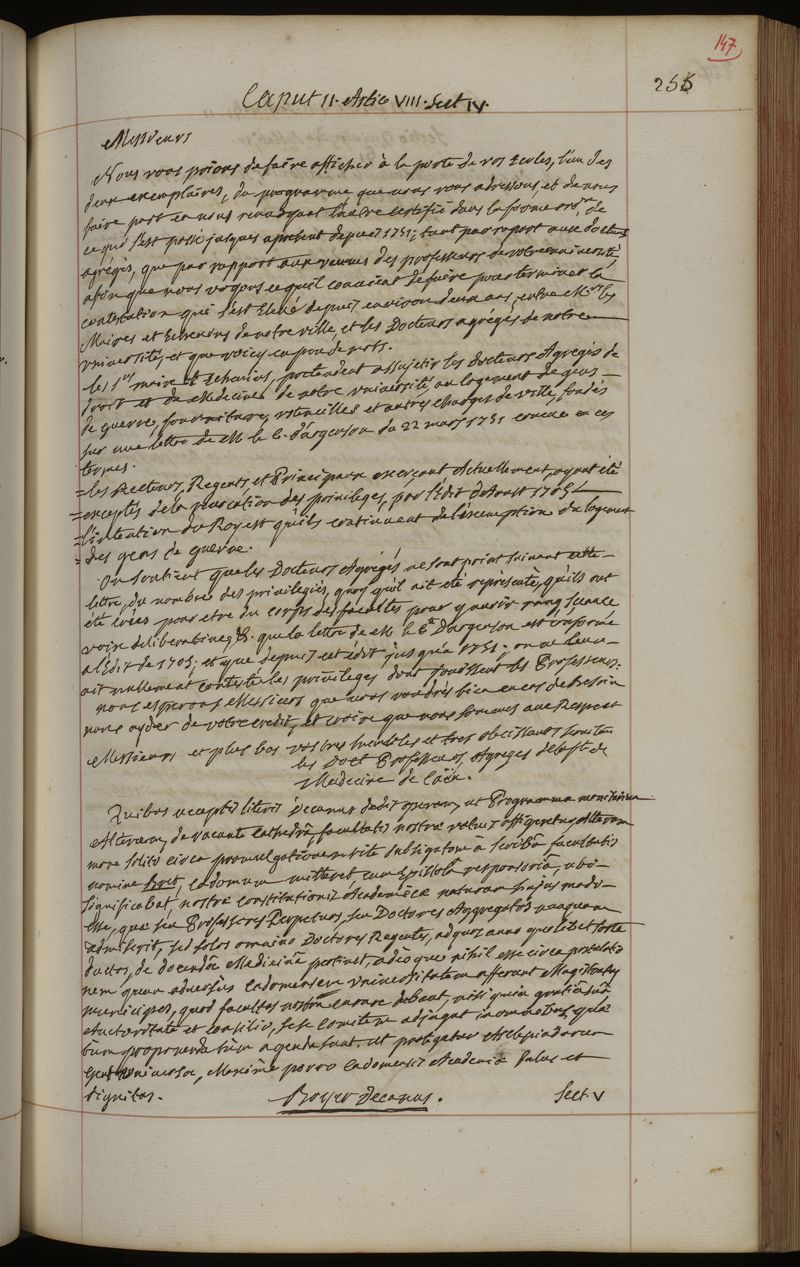 147
255
Caput II. Artic VIII. Sect IV.
Messieurs
Nous vous prions de faire afficher à la porte de vos Ecoles, l'un des
deux exemplaires, du programme que nous vous adressons et de nous
faire part en nous renvoyant l'autre certifié dans la forme ordre, de
ce qui s'est passé jusques a present depuis 1751; tant par raport aux docteurs
agrégés, que par rapport aux veuves des professeurs de votre université,
afin que nous voyons ce qu'il convient de faire pour terminer la
contestation qui s'est Elevé depuis environ deux ans, entre Mrs les
Maires et Echevins de notre ville, et les Docteurs agrégés de notre
université, et que voicy en peu de mots.
les Srs maire et Echevins, pretendent assujetir les docteurs Agregés de
droit et de Medecine de notre université au logement de gens
de guerre, fournitures, ustencilles et autres charges de ville, fondés
sur une lettre de M le C. d'argenson du 22 mars 1751 concue en ces
termes.
=les Recteurs, Regents, et Principaux exerçant Actuellement, ayant été
=exceptés de la revocation des privileges, par l'Edit d'Aoust 1705
=l'intention du Roy est qu'ils continuent de l'exemption du logement
=des gens de guerre.
On soutient que les Docteurs Agrégés ne sont point suivant cette
lettre, du nombre des privilegiés, quoy qu'il ait été représenté, qu'ils ont
été créés pour etre du corps des facultés pour y avoir rang seance
voix deliberative &. que la lettre de M le Cte D'argenson est
a l'Edit de 1705; et que depuis cet édit jusqu'a 1751; on ne leur
ait nullement contesté les privileges dont jouissent les Professeurs.
nous esperons Messieurs que vous voudrés bien en cas de besoin
nous ayder de votre credit, et croire que nous sommes avec Respect
Messieurs et plus bas vos tres humbles et tres obeissants serviteurs
les Doct Professeurs Agreges de la fté de
Medecine de
Quibus acceptis literis Decanus dedit operam, ut Programma
Alterum, de vacante cathedrâ, facultatis nostræ valvis affigeretur, alterum
more solito circa promulgationem rite subsignatum a scribâ facultatis
nomine Cadomum mitteret cum Epistolâ responsoriâ, ubi
significabat, nostræ constitutionis Academicæ naturam hujus modi
esse, quæ seu Professores Perpetuos, seu Doctores Aggregatos nusquam
admiserit, sed solos omnino Doctores Regentes, ad quos anno quolibet sorte
ductos, de docendâ Medicinâ pertinet, adeoque nihil esse circa postulatio
nem quam adversùs Cadomensem universitatem afferunt Magistratus
municipes, quod facultas nostra curare debeat, nisi quia gratiâ suâ
Auctoritate et consilio, sese comitem adjungat in omnibus, quæ
tum proponenda tum agenda sunt ut protegatur Asclepiadarum
gens universa, Maxime porro Cadomensis Academiæ salus et
dignitas.
Boyer Decanus.
Sect. V